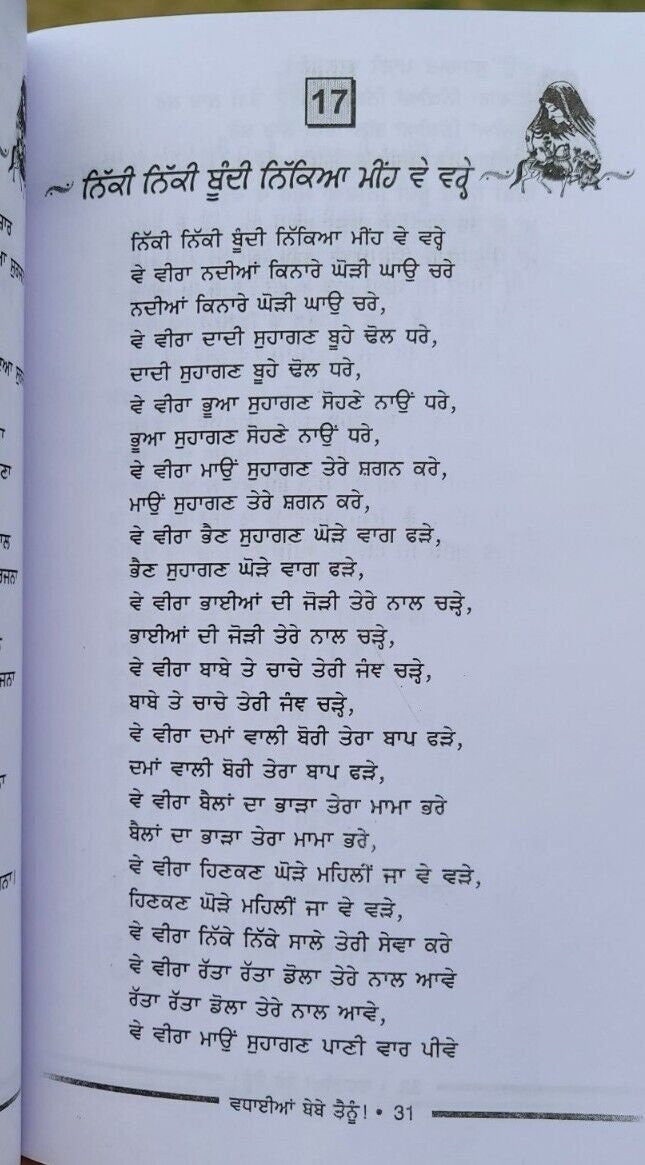 17
ਨਿੱਕੀ ਨਿੱਕੀ ਬੂੰਦੀ ਨਿੱਕਿਆ ਮੀਂਹ ਵੇ ਵਰ੍ਹੇ
ਨਿੱਕੀ ਨਿੱਕੀ ਬੂੰਦੀ ਨਿੱਕਿਆ ਮੀਂਹ ਵੇ ਵਰ੍ਹੇ
ਵੇ ਵੀਰਾ ਨਦੀਆਂ ਕਿਨਾਰੇ ਘੋੜੀ ਘਾਉ ਚਰੇ
ਨਦੀਆਂ ਕਿਨਾਰੇ ਘੋੜੀ ਘਾਉ ਚਰੇ,
ਵੇ ਵੀਰਾ ਦਾਦੀ ਸੁਹਾਗਣ ਬੂਹੇ ਢੋਲ ਧਰੇ,
ਦਾਦੀ ਸੁਹਾਗਣ ਬੂਹੇ ਢੋਲ ਧਰੇ,
ਵੇ ਵੀਰਾ ਭੂਆ ਸੁਹਾਗਣ ਸੋਹਣੇ ਨਾਉਂ ਧਰੇ,
ਭੂਆ ਸੁਹਾਗਣ ਸੋਹਣੇ ਨਾਉਂ ਧਰੇ,
ਵੇ ਵੀਰਾ ਮਾਉਂ ਸੁਹਾਗਣ ਤੇਰੇ ਸ਼ਗਨ ਕਰੇ,
ਮਾਉਂ ਸੁਹਾਗਣ ਤੇਰੇ ਸ਼ਗਨ ਕਰੇ,
ਵੇ ਵੀਰਾ ਭੈਣ ਸੁਹਾਗਣ ਘੋੜੇ ਵਾਗ ਫੜੇ,
ਭੈਣ ਸੁਹਾਗਣ ਘੋੜੇ ਵਾਗ ਫੜੇ,
ਵੇ ਵੀਰਾ ਭਾਈਆਂ ਦੀ ਜੋੜੀ ਤੇਰੇ ਨਾਲ ਚੜ੍ਹੇ,
ਭਾਈਆਂ ਦੀ ਜੋੜੀ ਤੇਰੇ ਨਾਲ ਚੜ੍ਹੇ,
ਵੇ ਵੀਰਾ ਬਾਬੇ ਤੇ ਚਾਚੇ ਤੇਰੀ ਜੰਞ ਚੜ੍ਹੇ,
ਬਾਬੇ ਤੇ ਚਾਚੇ ਤੇਰੀ ਜੰਞ ਚੜ੍ਹੇ,
ਵੇ ਵੀਰਾ ਦਮਾਂ ਵਾਲੀ ਬੋਰੀ ਤੇਰਾ ਬਾਪ ਫੜੇ,
ਦਮਾਂ ਵਾਲੀ ਬੋਰੀ ਤੇਰਾ ਬਾਪ ਫੜੇ,
ਵੇ ਵੀਰਾ ਬੈਲਾਂ ਦਾ ਭਾੜਾ ਤੇਰਾ ਮਾਮਾ ਭਰੇ
ਬੈਲਾਂ ਦਾ ਭਾੜਾ ਤੇਰਾ ਮਾਮਾ ਭਰੇ,
ਵੇ ਵੀਰਾ ਹਿਣਕਣ ਘੋੜੇ ਮਹਿਲੀਂ ਜਾ ਵੇ ਵੜੇ,
ਹਿਣਕਣ ਘੋੜੇ ਮਹਿਲੀਂ ਜਾ ਵੇ ਵੜੇ,
ਵੇ ਵੀਰਾ ਨਿੱਕੇ ਨਿੱਕੇ ਸਾਲੇ ਤੇਰੀ ਸੇਵਾ ਕਰੇ
ਵੇ ਵੀਰਾ ਰੱਤਾ ਰੱਤਾ ਡੋਲਾ ਤੇਰੇ ਨਾਲ ਆਵੇ
ਰੱਤਾ ਰੱਤਾ ਡੋਲਾ ਤੇਰੇ ਨਾਲ ਆਵੇ,
ਵੇ ਵੀਰਾ ਮਾਉਂ ਸੁਹਾਗਣ ਪਾਣੀ ਵਾਰ ਪੀਵੇ
ਵਧਾਈਆਂ ਬੇਬੇ ਤੈਨੂੰ! • 31